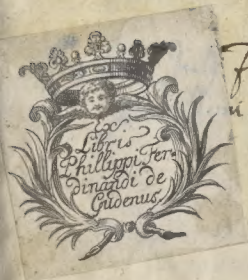 ex
Libris
Phillippi Fer-
dinandi de
Gudenus